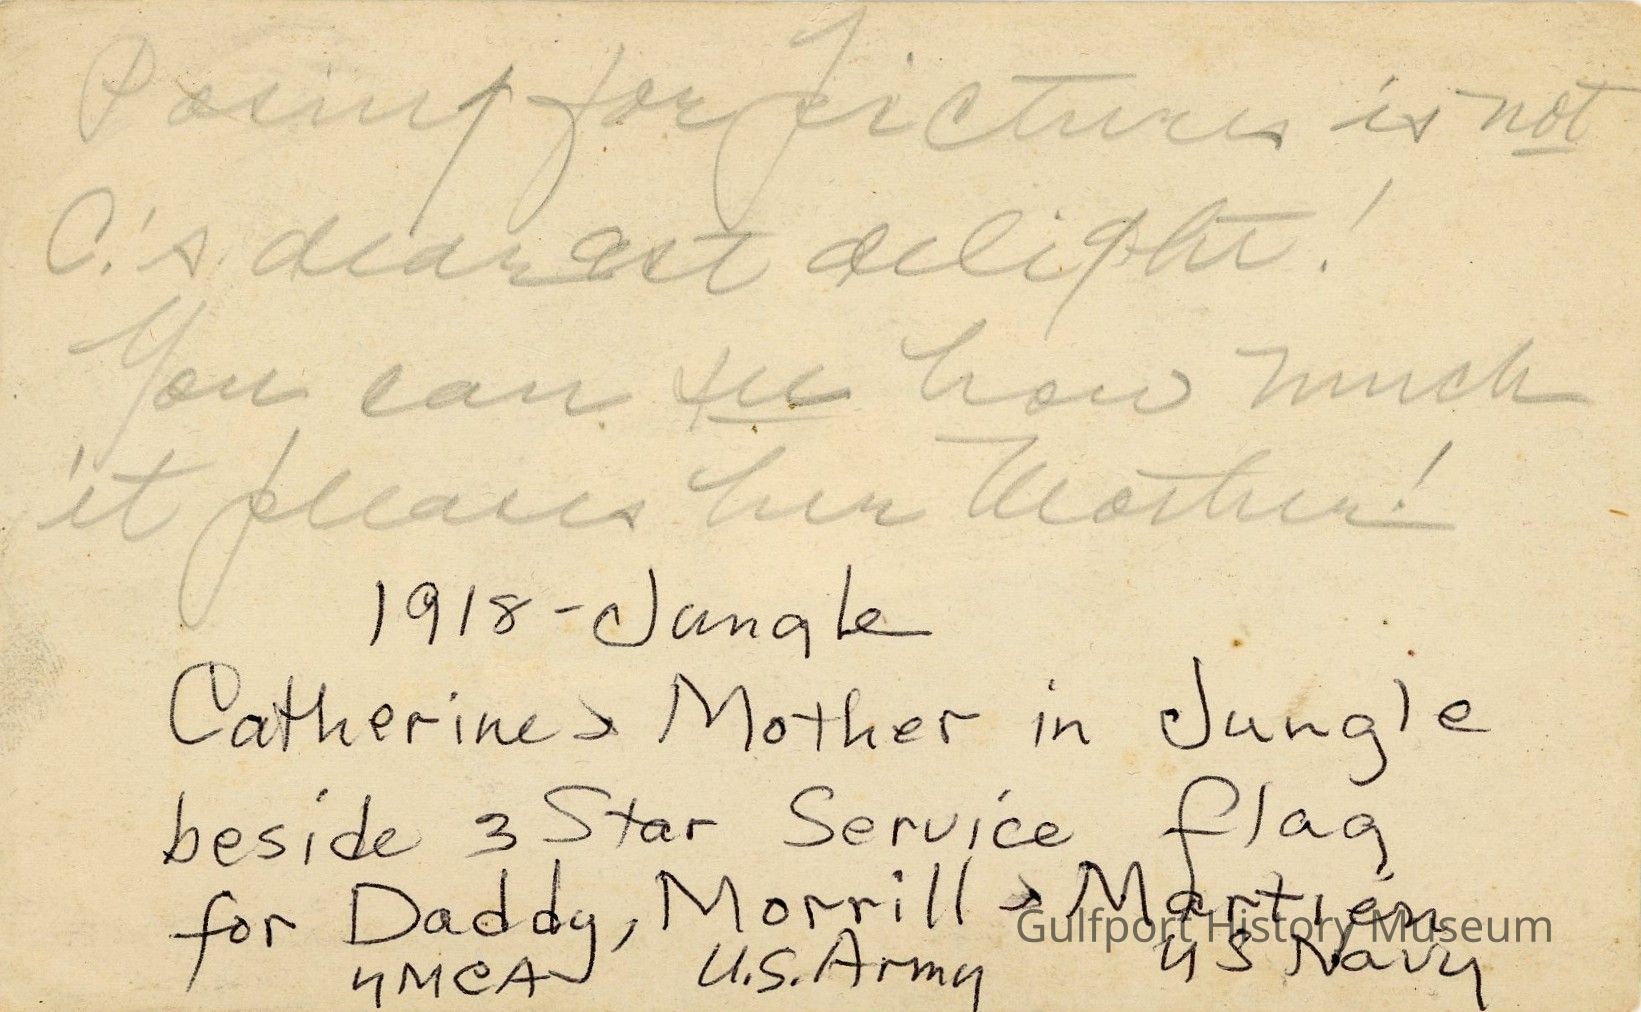 Posing for pictures is not
C.'s dearest delight!
You can see how much
it pleases her Mother!
1918-Jungle
Catherine > Mother in Jungle
beside 3 Star Service flag
for Daddy, Morrill > Martien
YMCA U.S. Army US Navy
Gulfport History Museum